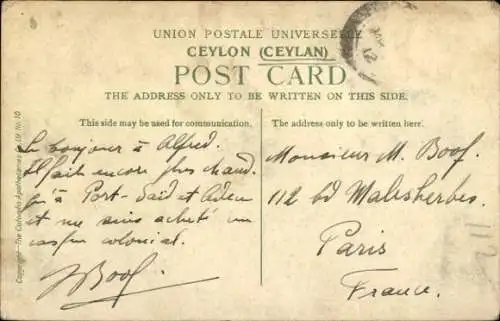 UNION POSTALE UNIVERSELLE
CEYLON (CEYLAN)
POST CARD
THE ADDRESS ONLY TO BE WRITTEN ON THIS SIDE.
This side may be used for communication.
The address only to be written here.
Le bonjour à Alfred.
Il fait encore plus chaud
qu'à Port-Saïd et Aden
et me suis acheté un
casque colonial.
Boof.
Monsieur M. Boof.
112 bd Malesherbes.
Paris
France.
Copyright—The Colombo Apothecaries Co. Ld. No. 10